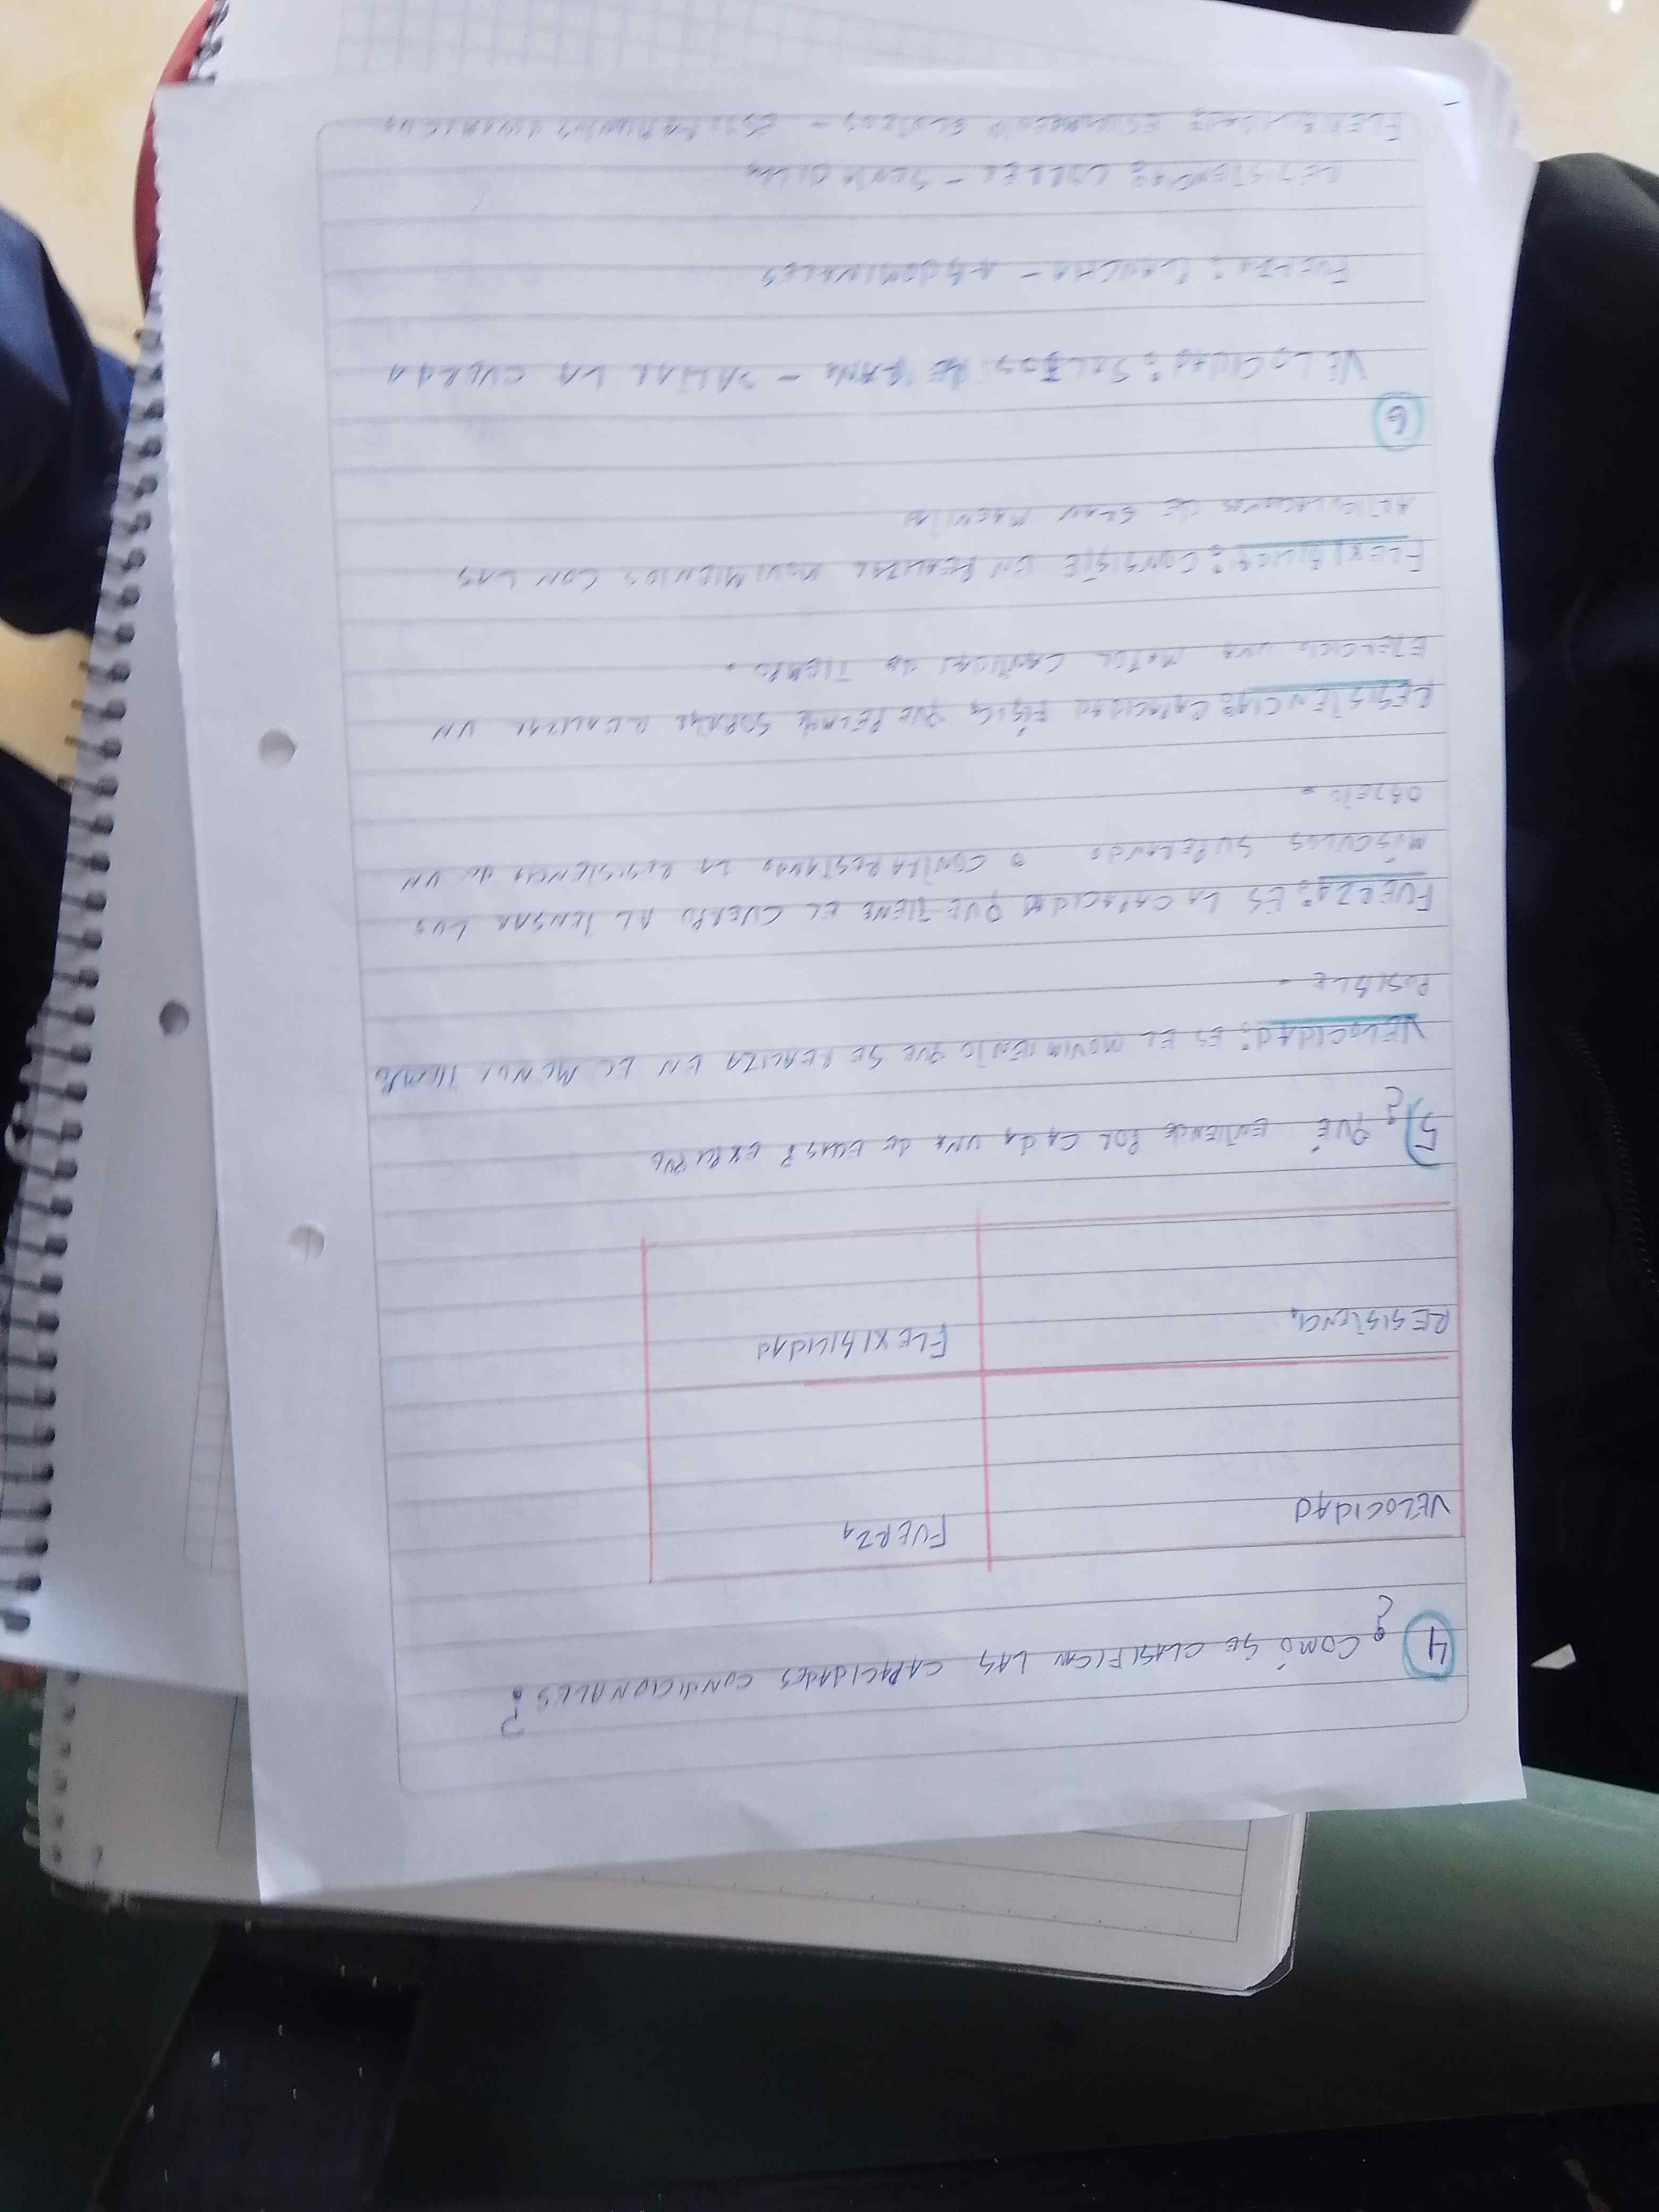 4 ¿COMÓ SE CLASIFICAN LAS CAPACIDADES CONDICIONALES?
VELOCIDAD FUERZA
RESISTENCIA FLEXIBILIDAD
5) ¿QUÉ ENTIENDE POR CADA UNA DE ELLAS? EXPLIQUE
VELOCIDAD: ES EL MOVIMIENTO QUE SE REALIZA EN EL MENOR TIEMPO
POSIBLE.
FUERZA: ES LA CAPACIDAD QUE TIENE EL CUERPO AL TENSAR LOS
MÚSCULOS SUPERANDO O CONTRARESTANDO LA RESISTENCIA DE UN
OBJETO.
RESISTENCIA: CAPACIDAD FÍSICA QUE PERMITE SOPORTAR REALIZAR UN
EJERCICIO UNA MAYOR CANTIDAD DE TIEMPO.
CONSISTE EN REALIZAR MOVIMIENTOS CON LAS
ARTICULACIONES DE GRAN
6
VELOCIDAD: SALTOS DE RANA - SALTAR LA CUERDA
FUERZA: PLANCHA - ABDOMINALES
RESISTENCIA: CORRER - SENTADILLA